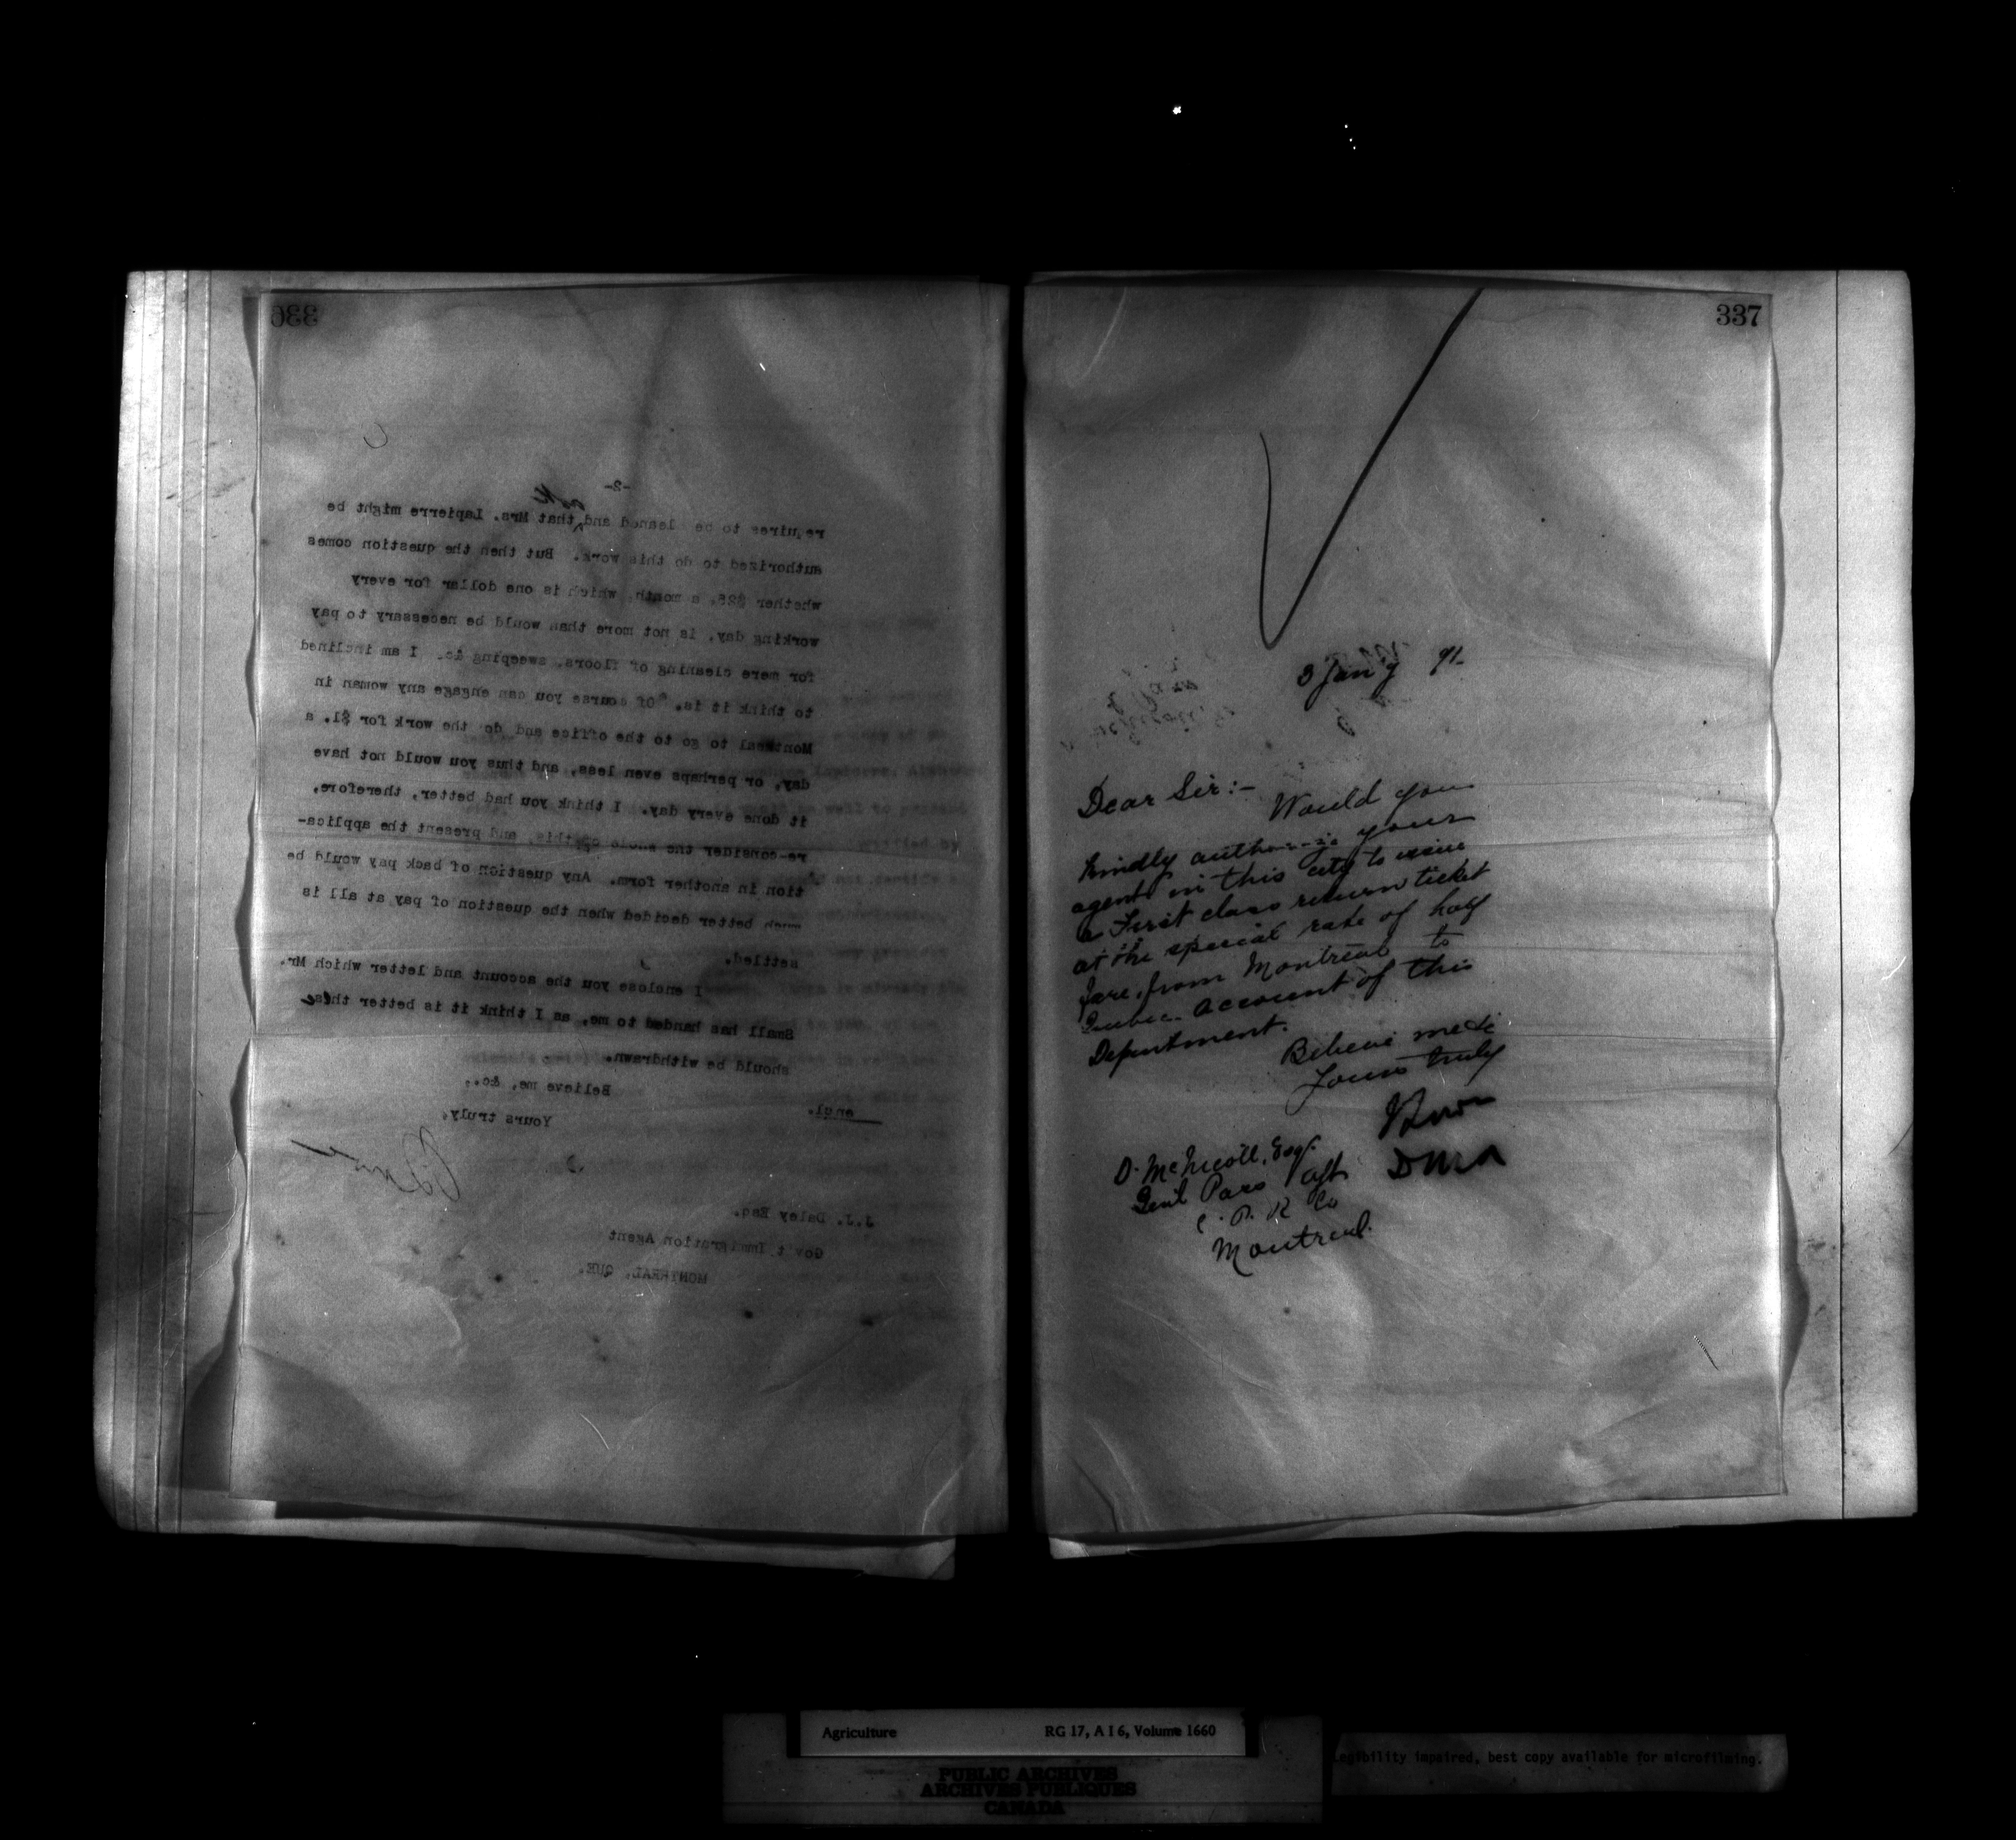 336
-2-
requires to be cleaned and ask that Mrs. Lapierre might be
authorized to do this work. But then the question comes
whether $26. a month, which is one dollar for every
working day, is not more than would be necessary to pay
for mere cleaning of floors, sweeping &c. I am inclined
to think it is. Of course you can engage any woman in
Montreal to go to the office and do the work for $1. a
day, or perhaps even less, and thus you would not have
it done every day. I think you had better, therefore,
re-consider the whole of this, and present the applica-
tion in another form. Any question of back pay would be
much better decided when the question of pay at all is
settled.
I enclose you the account and letter which Mr.
Small has handed to me, as I think it is better these
should be withdrawn.
Believe me, &c.,
Yours truly,
encl.
J.J. Daley Esq.
Gov't Immigration Agent
MONTREAL, QUE.
337
3 Jany 91-
Dear Sir:-
Would you
kindly authorize your
agent in this city to issue
a First class return ticket
at the special rate of half
fare, from Montreal to
Quebec account of this
Department.
Believe me &c
Yours truly
D. McNicoll, Esq.
Genl Pass Agt
C. P. R Co
Montreal.
Agriculture RG 17, A I 6, Volume 1660
PUBLIC ARCHIVES
ARCHIVES PUBLIQUES
CANADA
Legibility impaired, best copy available for microfilming.